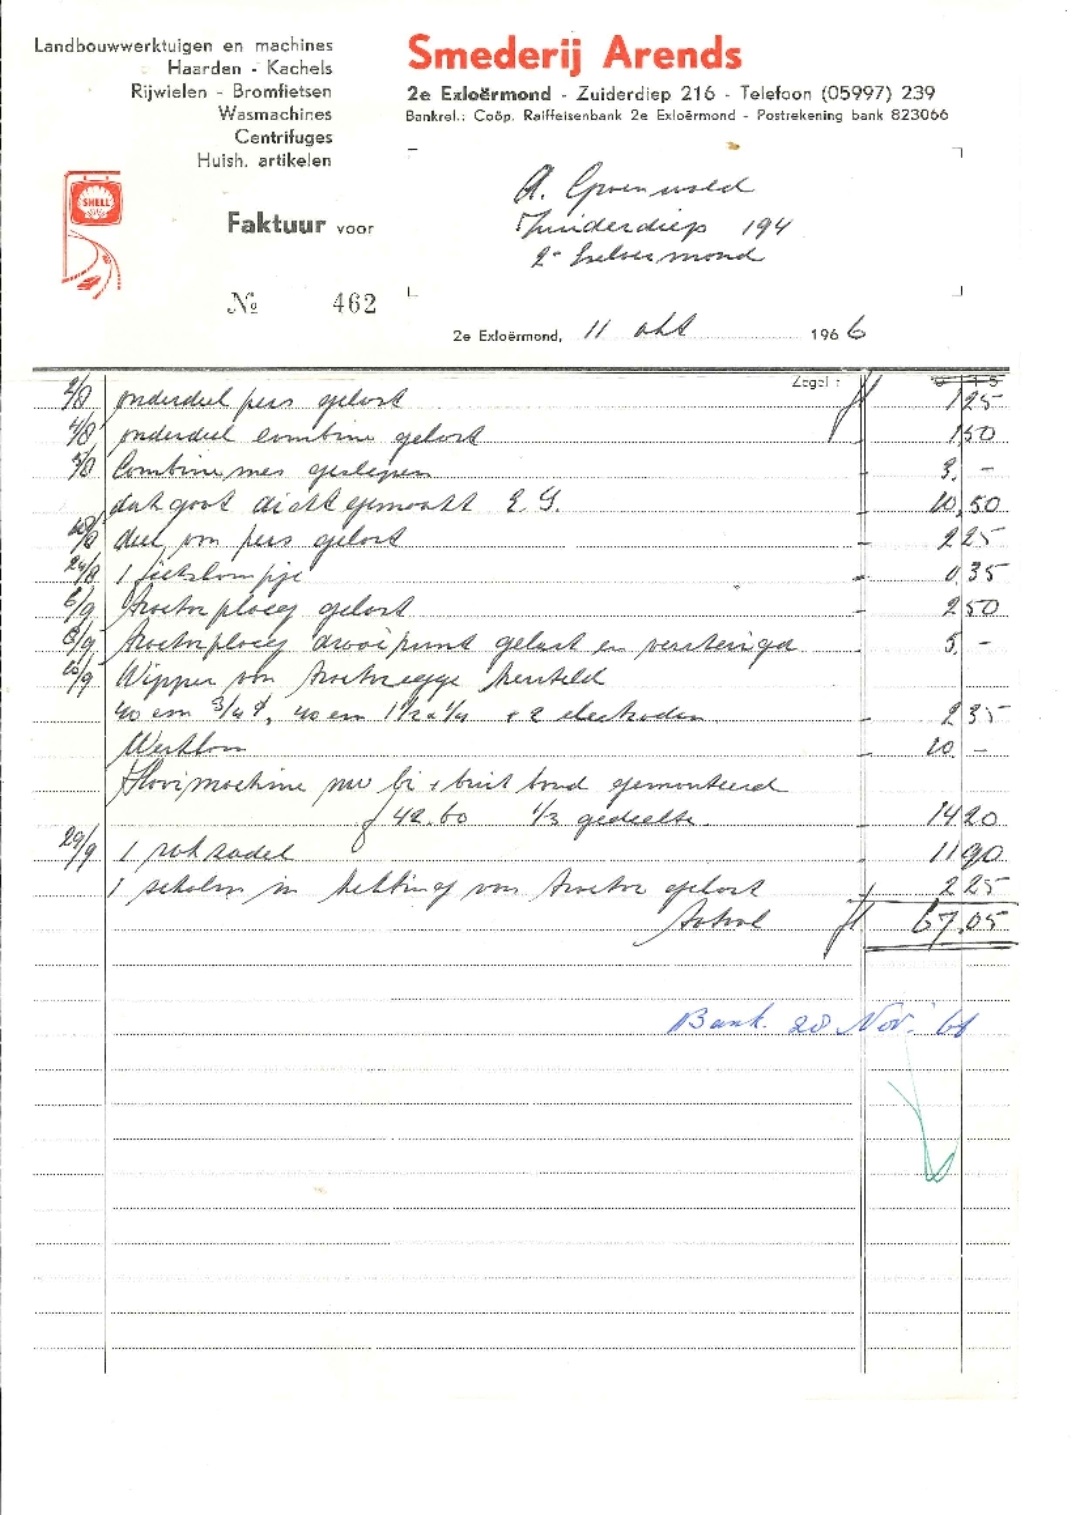 Landbouwwerktuigen en machines
Haarden - Kachels
Rijwielen - Bromfietsen
Wasmachines
Centrifuges
Huish. artikelen
Smederij Arends
2e Exloërmond - Zuiderdiep 216 - Telefoon (05997) 239
Bankrel.: Coöp. Raiffeisenbank 2e Exloërmond - Postrekening bank 823066
SHELL
Faktuur voor
A. Groenwold
Zuiderdiep 194
2e Exloërmond
№ 462
2e Exloërmond, 11 okt 1966
Zegel : 0 15
2/8 onderdeel pers gelast fl 1 25
4/8 onderdeel combine gelast 1,50
5/8 Combine mes geslepen - 3. -
dakgoot dicht gemaakt - 10,50
deel van pers gelast - 2 25
24/8 1 fietslampje - 0,35
6/9 tractor ploeg gelast - 2 50
8/9 tractorploeg gelast en verstevigd - 5. -
10/9 Wipper van tractoregge hersteld
40 cm 3/4, 40 cm 1 1/2 x 1/4 + 2 electroden - 2 35
Werkloon - 10. -
machine bi + buit band gemonteerd
f 42.60 1/3 gedeelte - 14 20
29/9 1 zadel - 11 90
1 in ketting van tractor gelast - 2 25
Totaal fl 67.05
Bank. 28 Nov. 66